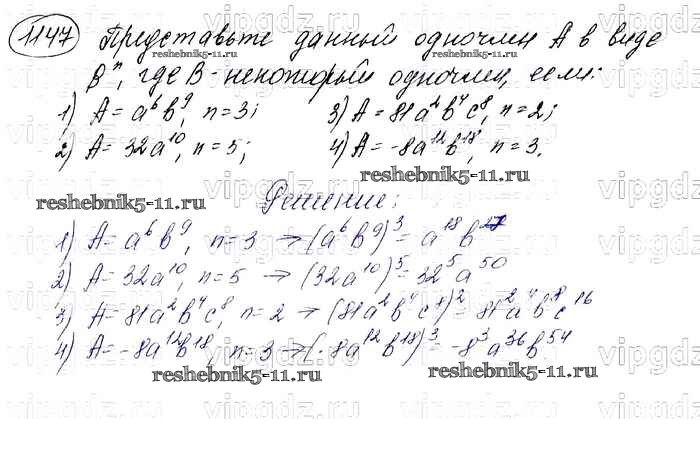 1147 Представьте данный одночлен A в виде
Bⁿ, где B - некоторый одночлен, если:
1) A = a⁶b⁹, n = 3; 3) A = 81a²b⁴c⁸, n = 2;
2) A = 32a¹⁰, n = 5; 4) A = -8a¹²b¹⁸, n = 3.
Решение:
1) A = a⁶b⁹, n = 3 → (a⁶b⁹)³ = a¹⁸b²⁷
2) A = 32a¹⁰, n = 5 → (32a¹⁰)⁵ = 32⁵a⁵⁰
3) A = 81a²b⁴c⁸, n = 2 → (81a²b⁴c⁸)² = 81²a⁴b⁸c¹⁶
4) A = -8a¹²b¹⁸, n = 3 → (-8a¹²b¹⁸)³ = -8³a³⁶b⁵⁴
reshebnik5-11.ru
reshebnik5-11.ru
reshebnik5-11.ru
reshebnik5-11.ru
reshebnik5-11.ru
vipgdz.ru